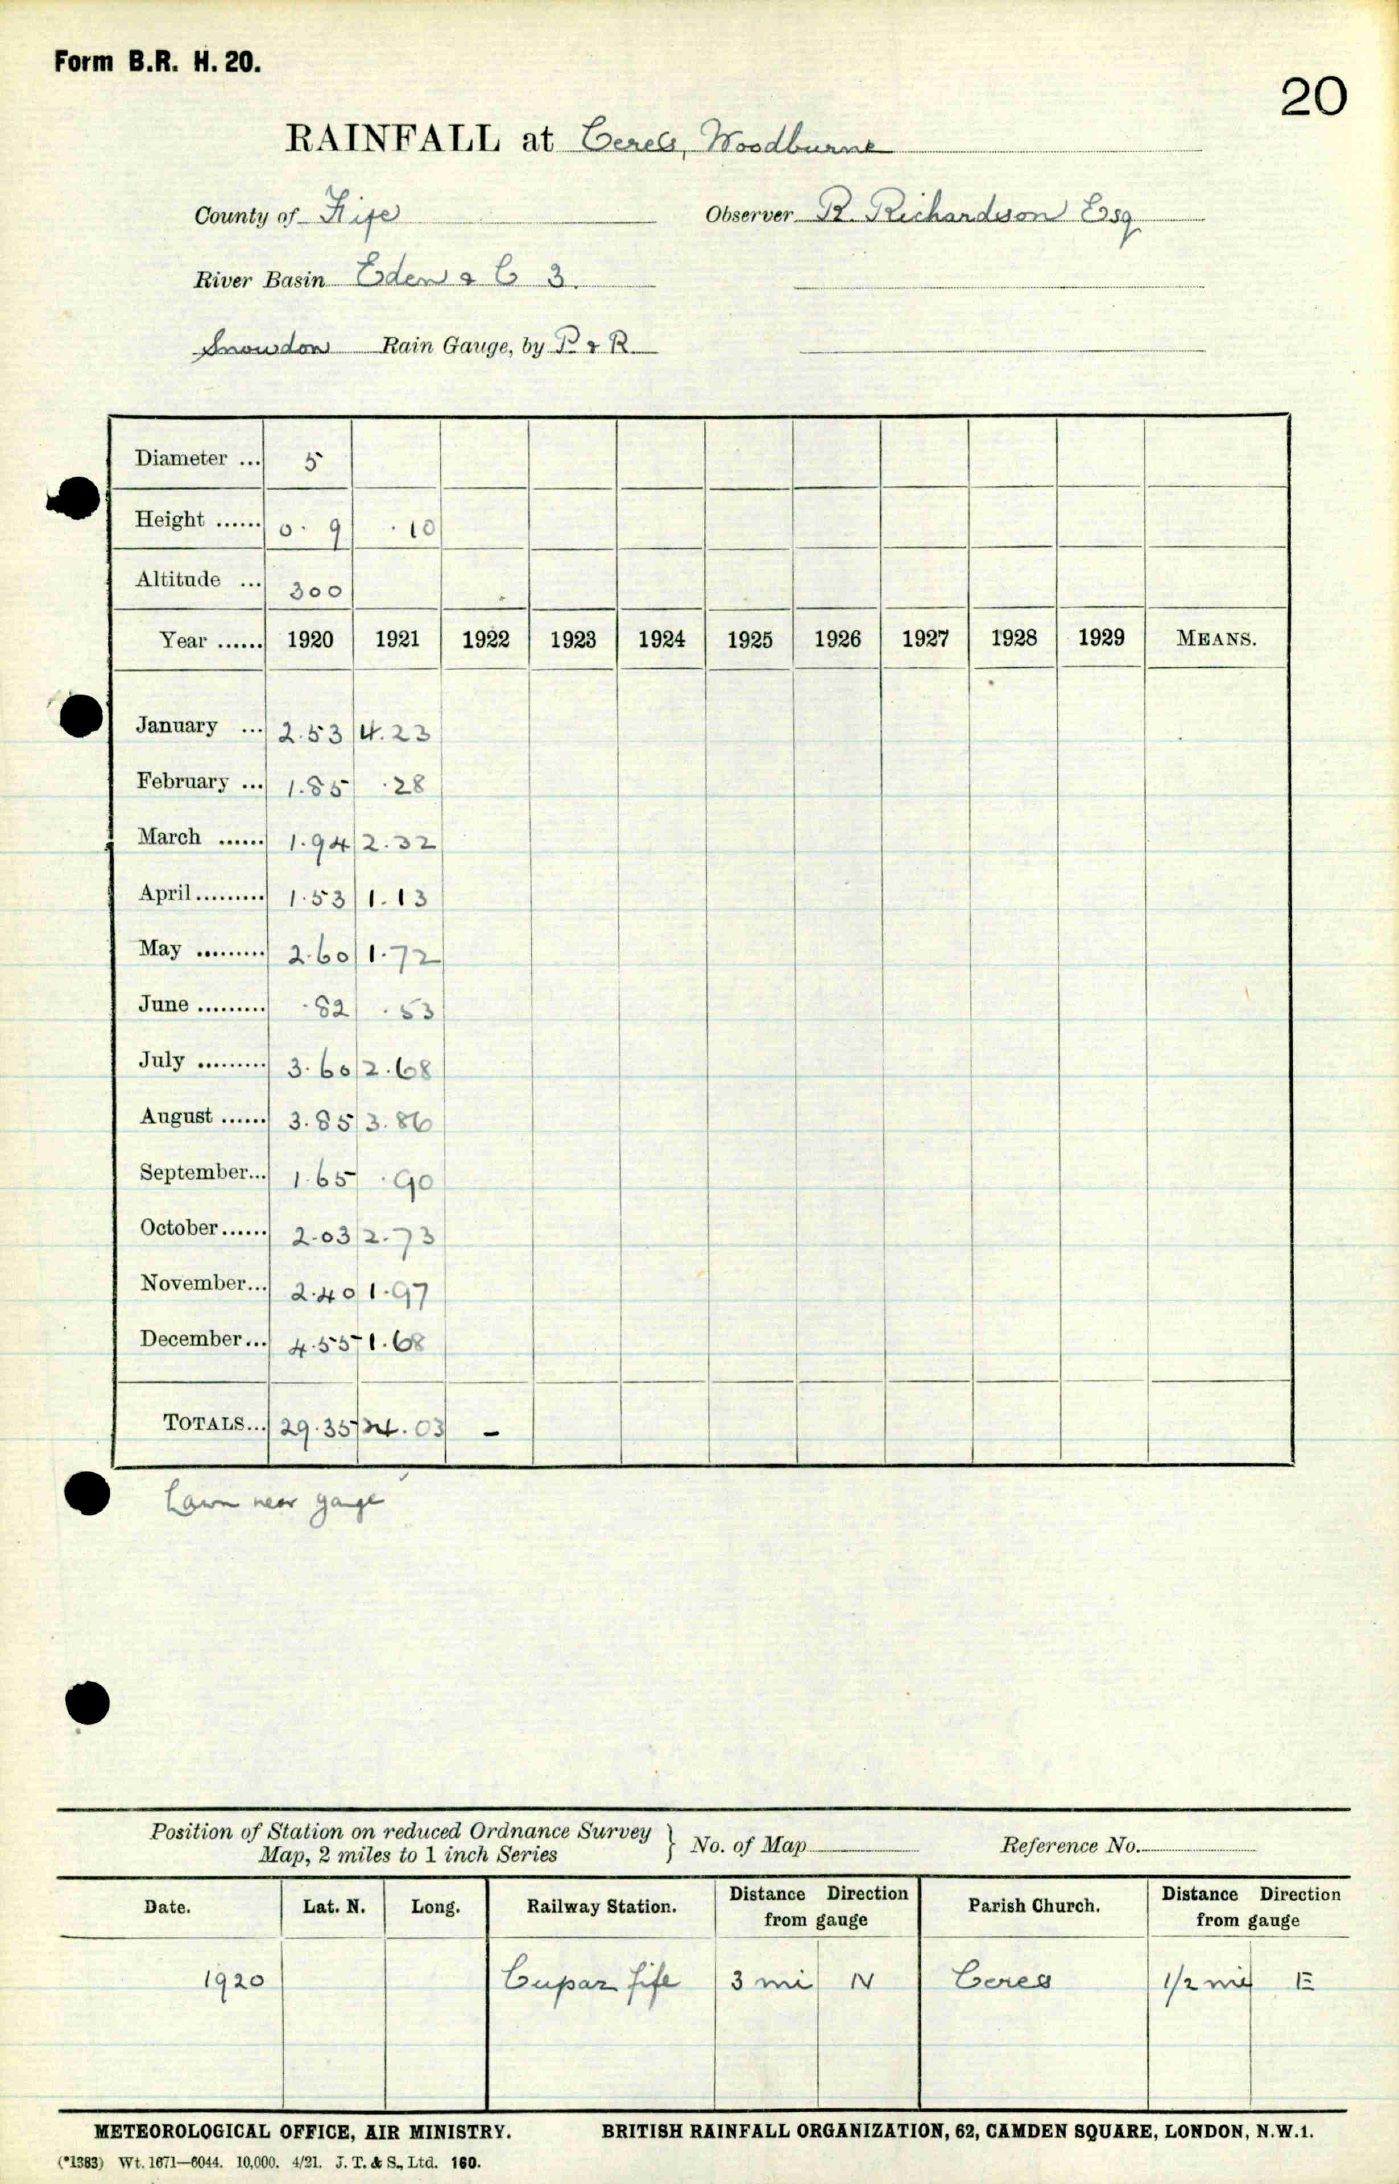 Form B.R. H. 20.
20
RAINFALL at Ceres, Woodburne
County of Fife Observer R. Richardson Esq
River Basin Eden & C 3.
Snowdon Rain Gauge, by P. & R.
Diameter ... 5
Height ...... 0. 9 .10
Altitude ... 300
Year ...... 1920 1921 1922 1923 1924 1925 1926 1927 1928 1929 MEANS.
January ... 2.53 4.23
February ... 1.85 .28
March ...... 1.94 2.32
April ......... 1.53 1.13
May ......... 2.60 1.72
June ......... .82 .53
July ......... 3.60 2.68
August ...... 3.85 3.86
September... 1.65 .90
October...... 2.03 2.73
November... 2.40 1.97
December... 4.55 1.68
TOTALS... 29.35 24.03 –
Lawn near gauge
Position of Station on reduced Ordnance Survey
Map, 2 miles to 1 inch Series } No. of Map Reference No.
Date. Lat. N. Long. Railway Station. Distance Direction from gauge Parish Church. Distance Direction from gauge
1920 Cupar fife 3 mi N Ceres 1/2 mi E
METEOROLOGICAL OFFICE, AIR MINISTRY. BRITISH RAINFALL ORGANIZATION, 62, CAMDEN SQUARE, LONDON, N.W.1.
(*1383) Wt. 1671—6044. 10,000. 4/21. J. T. & S., Ltd. 160.